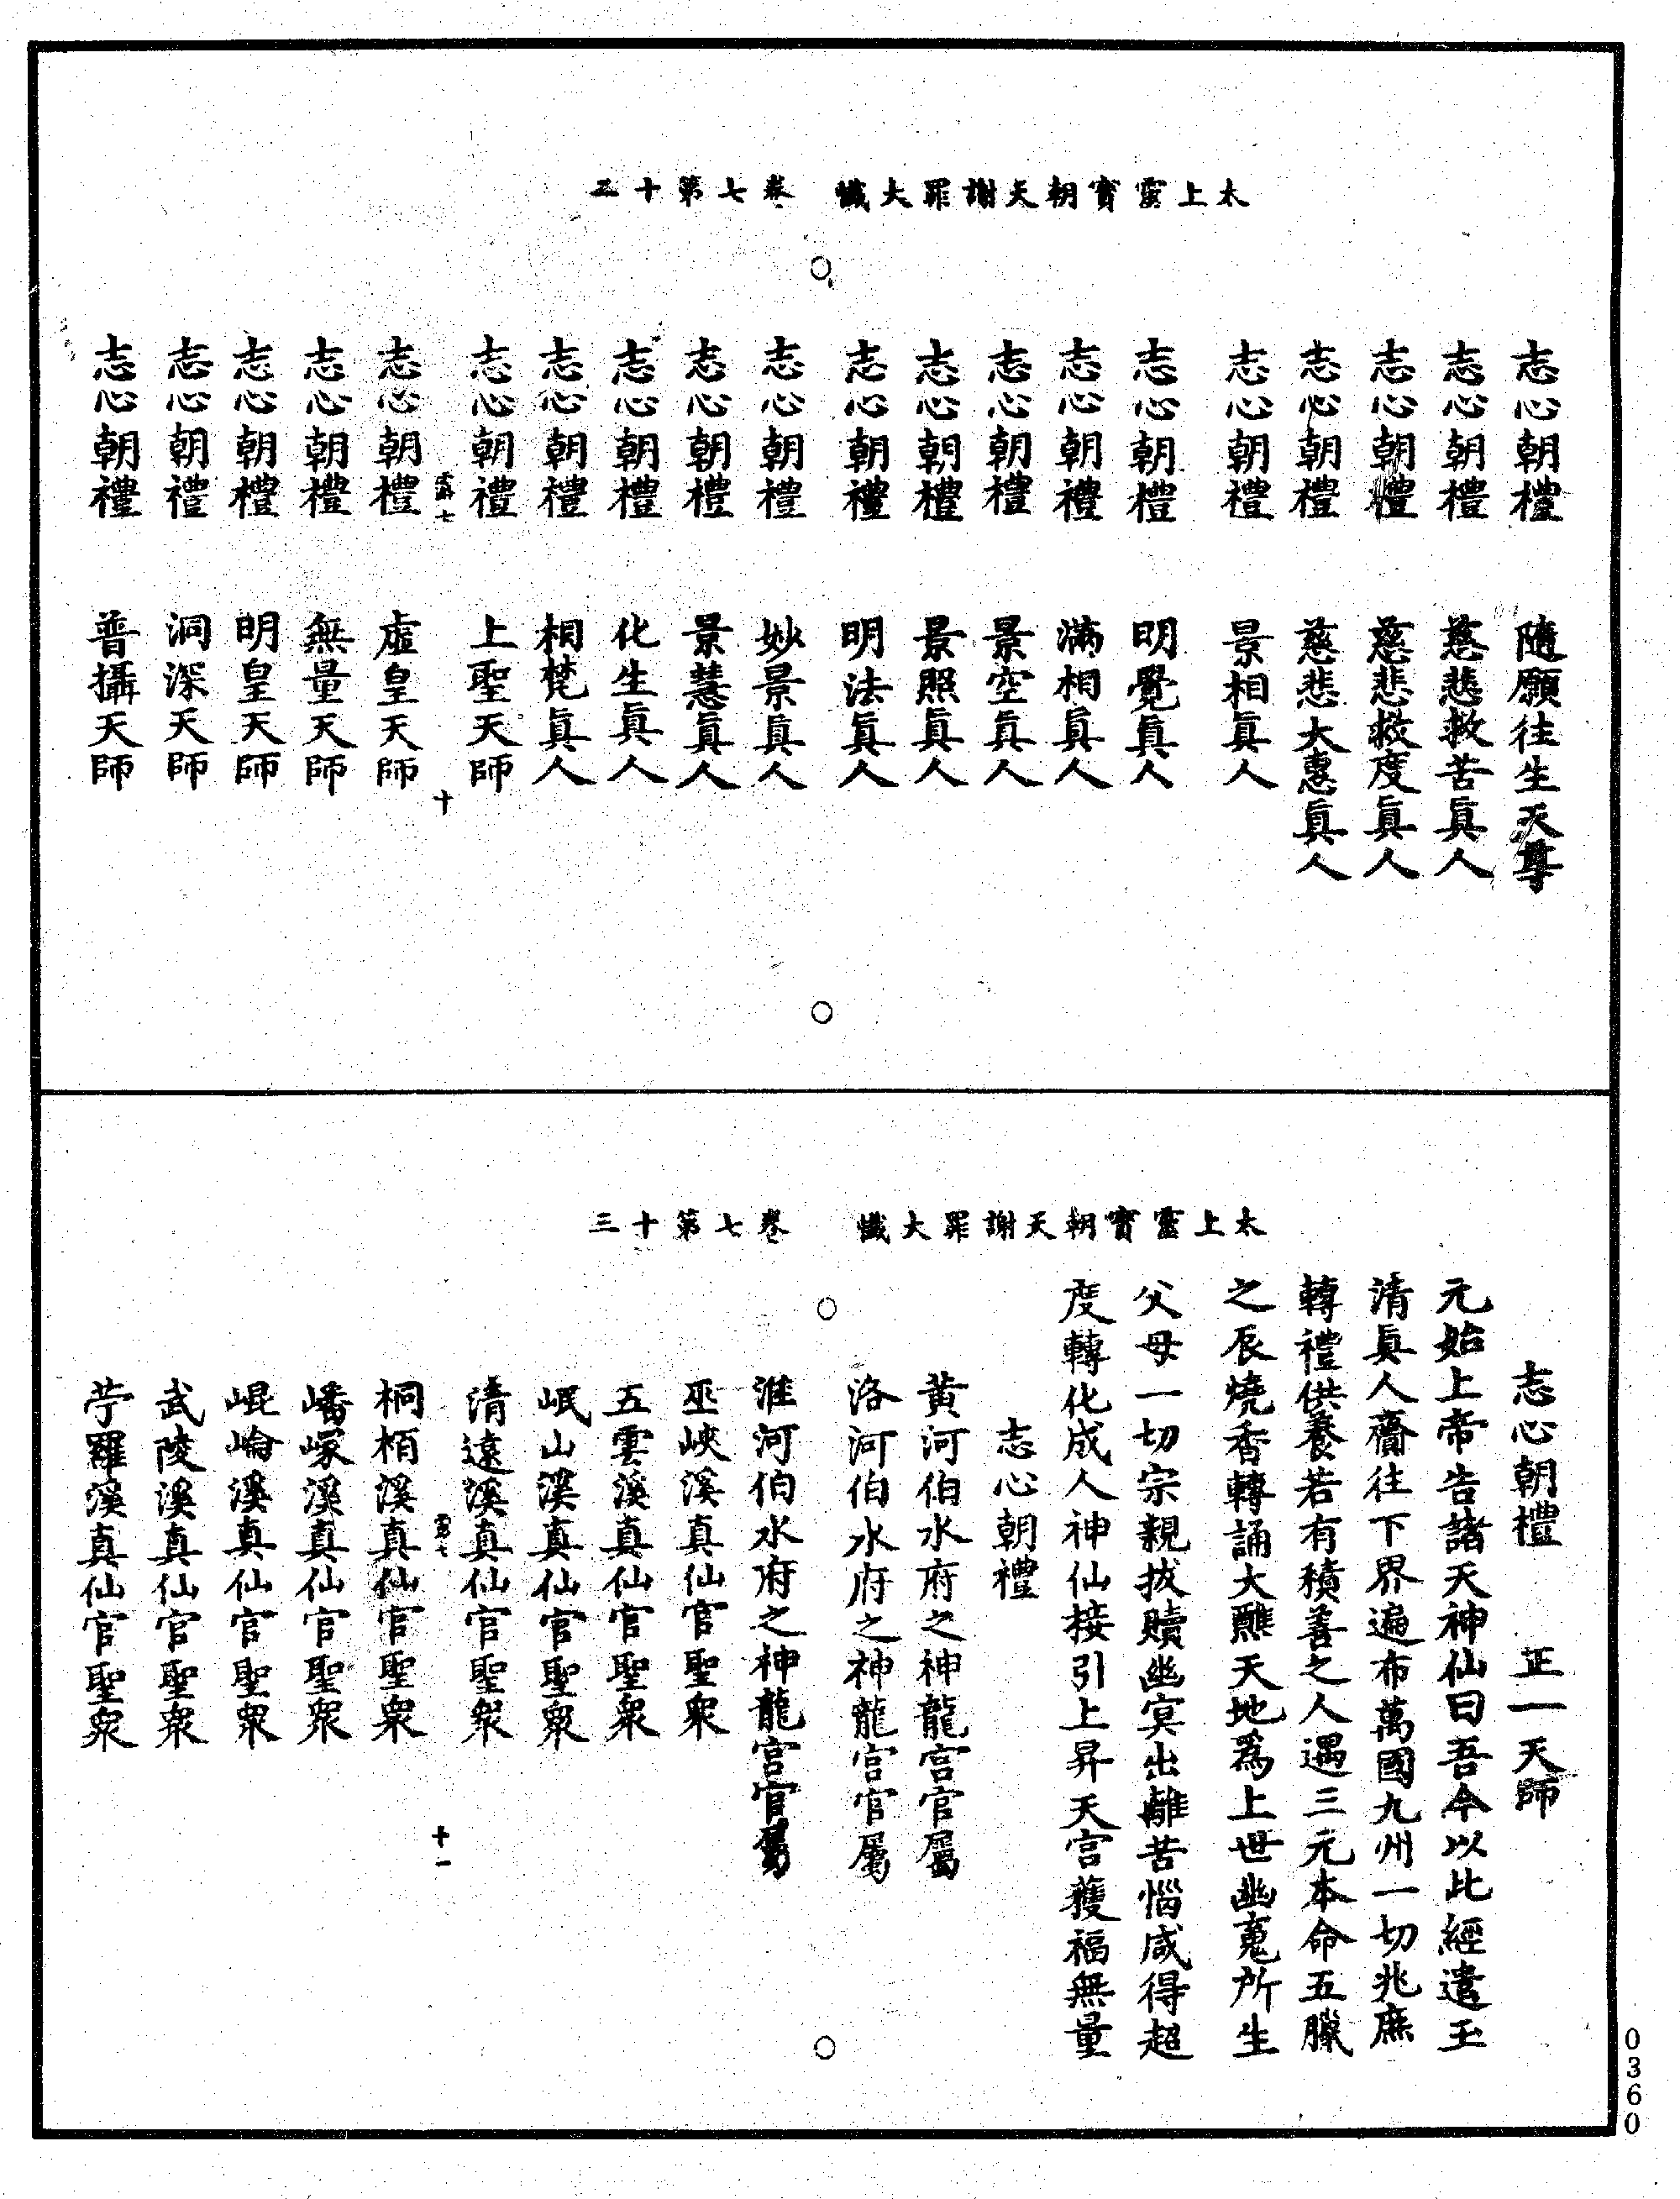 太上靈寶朝天謝罪大懺　卷七第十三
志心朝禮　隨願往生天尊
志心朝禮　慈悲救苦真人
志心朝禮　慈悲救度真人
志心朝禮　慈悲大惠真人
志心朝禮　景相真人
志心朝禮　明覺真人
志心朝禮　滿相真人
志心朝禮　景空真人
志心朝禮　景照真人
志心朝禮　明法真人
志心朝禮　妙景真人
志心朝禮　景慧真人
志心朝禮　化生真人
志心朝禮　相梵真人
志心朝禮　上聖天師
十
志心朝禮　虛皇天師
志心朝禮　無量天師
志心朝禮　明皇天師
志心朝禮　洞深天師
志心朝禮　普攝天師
太上靈寶朝天謝罪大懺　卷七第十三
志心朝禮　正一天師
元始上帝告諸天神仙曰吾今以此經遣玉
清真人齎往下界遍布萬國九州一切兆庶
轉禮供養若有積善之人遇三元本命五臘
之辰燒香轉誦大醮天地爲上世幽䰟所生
父母一切宗親拔贖幽冥出離苦惱咸得超
度轉化成人神仙接引上昇天宮獲福無量
志心朝禮
黃河伯水府之神龍宮官屬
洛河伯水府之神龍宮官屬
淮河伯水府之神龍宮官屬
巫峽溪真仙官聖衆
五雲溪真仙官聖衆
岷山溪真仙官聖衆
清遠溪真仙官聖衆
十一
桐栢溪真仙官聖衆
嶓塚溪真仙官聖衆
崐崘溪真仙官聖衆
武陵溪真仙官聖衆
苧羅溪真仙官聖衆
0360